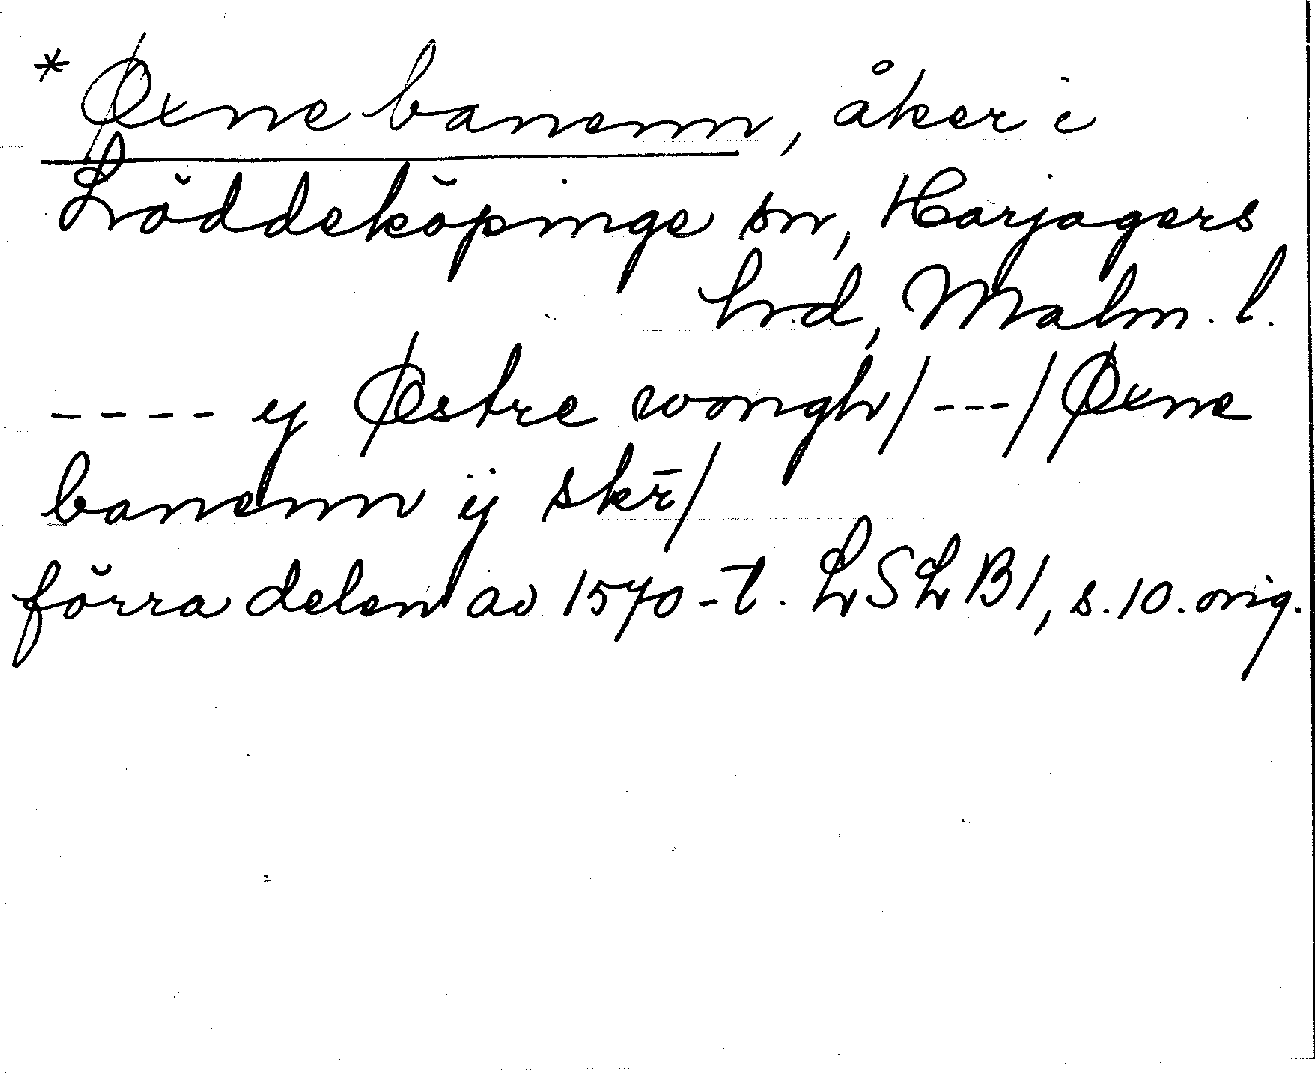 * Øxne banenn, åker i
Löddeköpinge sn, Harjagers
hrd, Malm. l.
---- y Østre wongh/---/Øxne
banenn ÿ skr̄/
förra delen av 1570-t. LSLB1, s.10. orig.